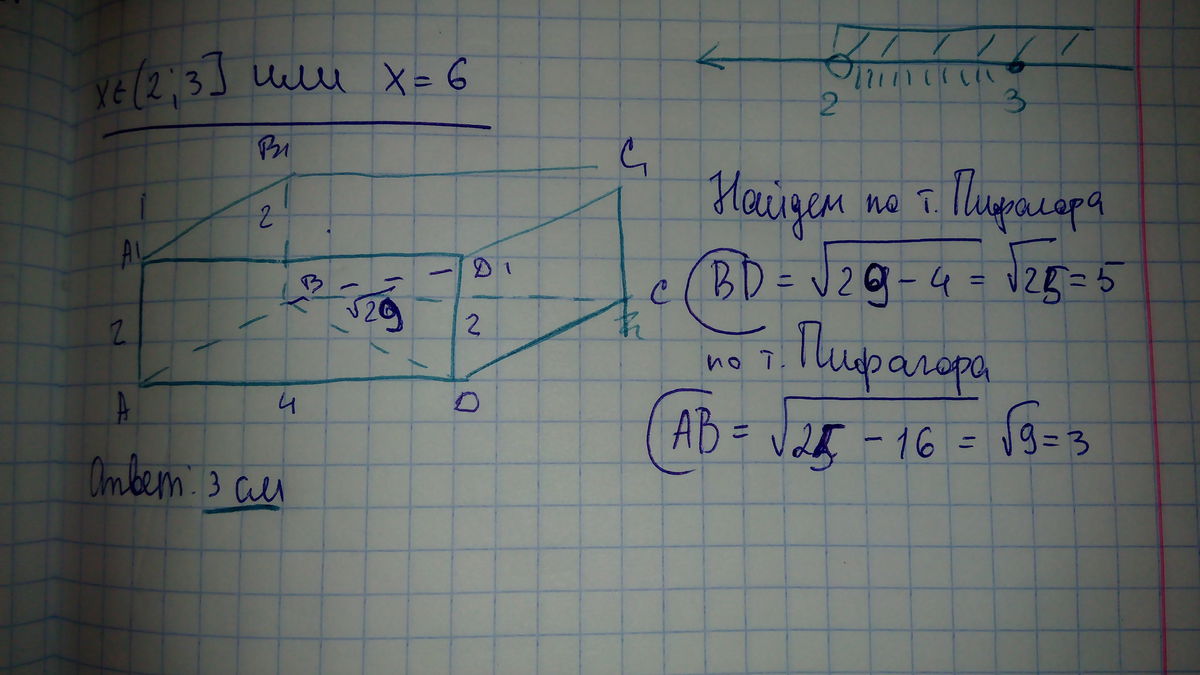 x∈(2;3] или x=6
2 3
B1 C1
1
2
A1 D1
B C
√29
2 2
A 4 D
Найдем по т. Пифагора
BD = √29-4 = √25 = 5
по т. Пифагора
AB = √25 - 16 = √9 = 3
Ответ: 3 см